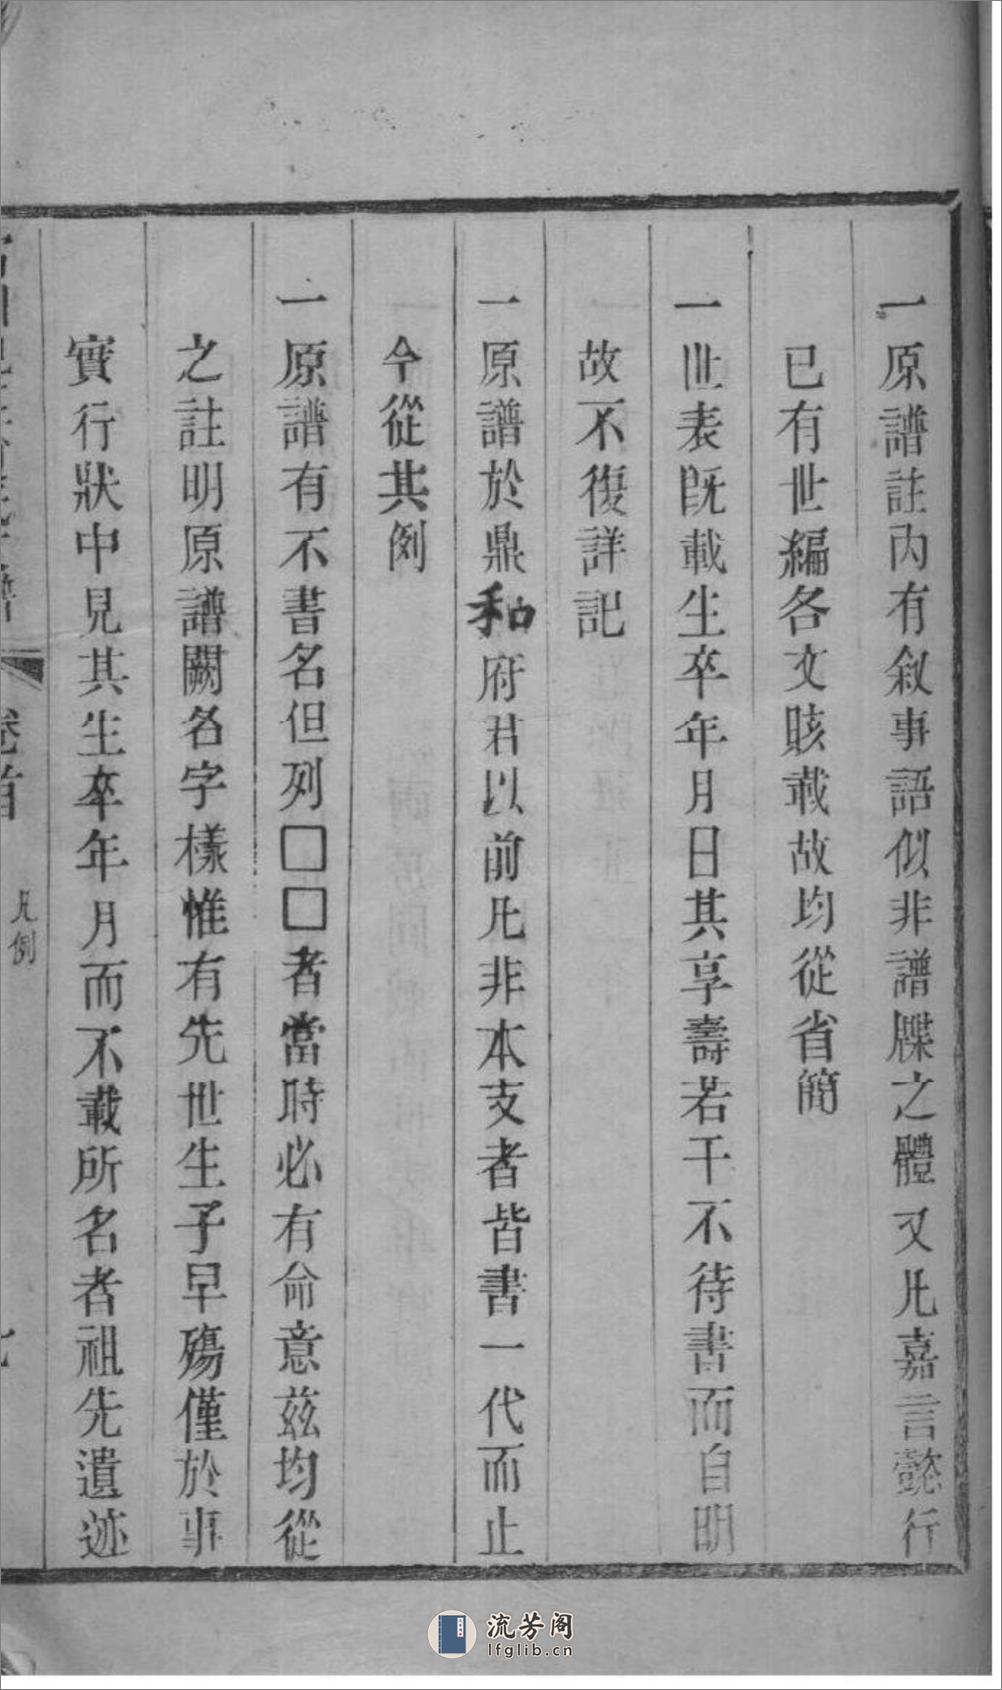 一原譜註內有敘事語似非譜牒之體又凡嘉言懿行
已有世編各文賅載故均從省簡
一世表既載生卒年月日其享壽若干不待書而自明
故不復詳記
一原譜於鼎和府君以前凡非本支者皆書一代而止
今從其例
一原譜有不書名但列□□者當時必有命意茲均從
之註明原譜闕名字樣惟有先世生子早殤僅於事
實行狀中見其生卒年月而不載所名者祖先遺迹
卷首
凡例
流芳阁
lfglib.cn